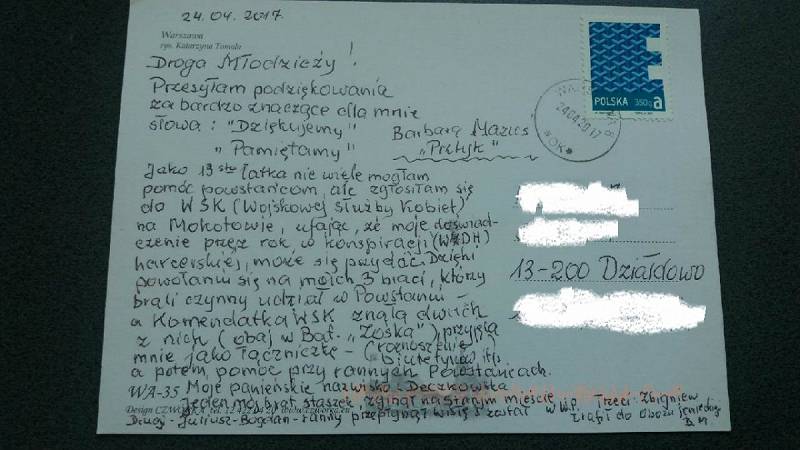 24.04.2017.
Warszawa
rys. Katarzyna Tomala
Droga Młodzieży!
Przesyłam podziękowania
za bardzo znaczące dla mnie
słowa: "Dziękujemy"
"Pamiętamy"
Barbara
"Pretyk"
Jako 13 sto latka nie wiele mogłam
pomóc powstańcom, ale zgłosiłam się
do WSK (Wojskowej Służby Kobiet)
na Mokotowie, ufając, że moje doświad-
czenie przez rok, w konspiracji
harcerskiej, może się przydać. Dzięki
powołaniu się na moich 3 braci, którzy
brali czynny udział w Powstaniu -
a Komendatka WSK znała dwuch
z nich (obaj w Bat. "Zośka") przyjęła
mnie jako łączniczkę - (roznoszenie
biuletynów itp)
a potem, pomoc przy rannych Powstańcach.
WA-35 Moje panieńskie nazwisko: Deczkowska
Jeden mój brat staszek, zginął na starym mieście
Drugi - Juliusz-Bogdan - ranny przepłynął wisłę i został w W.P. Trzeci: Zbigniew
trafił do obozu jenieckiego
Design
POLSKA 350g a
24.04.2017
13-200 Działdowo